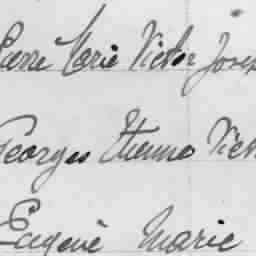 Pierre Marie Victor Josep
Georges Etienne Vict
Eugène Marie